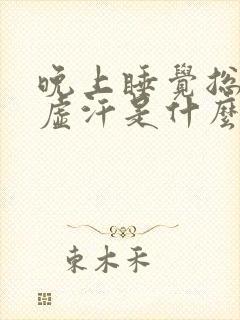 晚上睡覺總
虛汗是什麼
東木禾